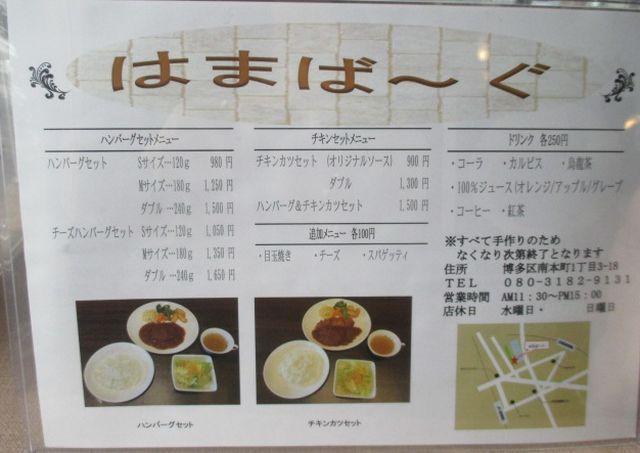 はまば～ぐ
ハンバーグセットメニュー
ハンバーグセット Sサイズ…120g 980 円
Mサイズ…180g 1,250 円
ダブル …240g 1,500 円
チーズハンバーグセット Sサイズ…120g 1,050 円
Mサイズ…180g 1,350 円
ダブル …240g 1,650 円
チキンセットメニュー
チキンカツセット (オリジナルソース) 900 円
ダブル 1,300 円
ハンバーグ&チキンカツセット 1,500 円
追加メニュー 各100円
・目玉焼き ・チーズ ・スパゲッティ
ドリンク 各250円
・コーラ ・カルピス ・烏龍茶
・100%ジュース(オレンジ/アップル/グレープ
・コーヒー ・紅茶
※すべて手作りのため
なくなり次第終了となります
住所 博多区南本町1丁目3-18
TEL 080-3182-9131
営業時間 AM11:30～PM15:00
店休日 水曜日・ 日曜日
ハンバーグセット
チキンカツセット